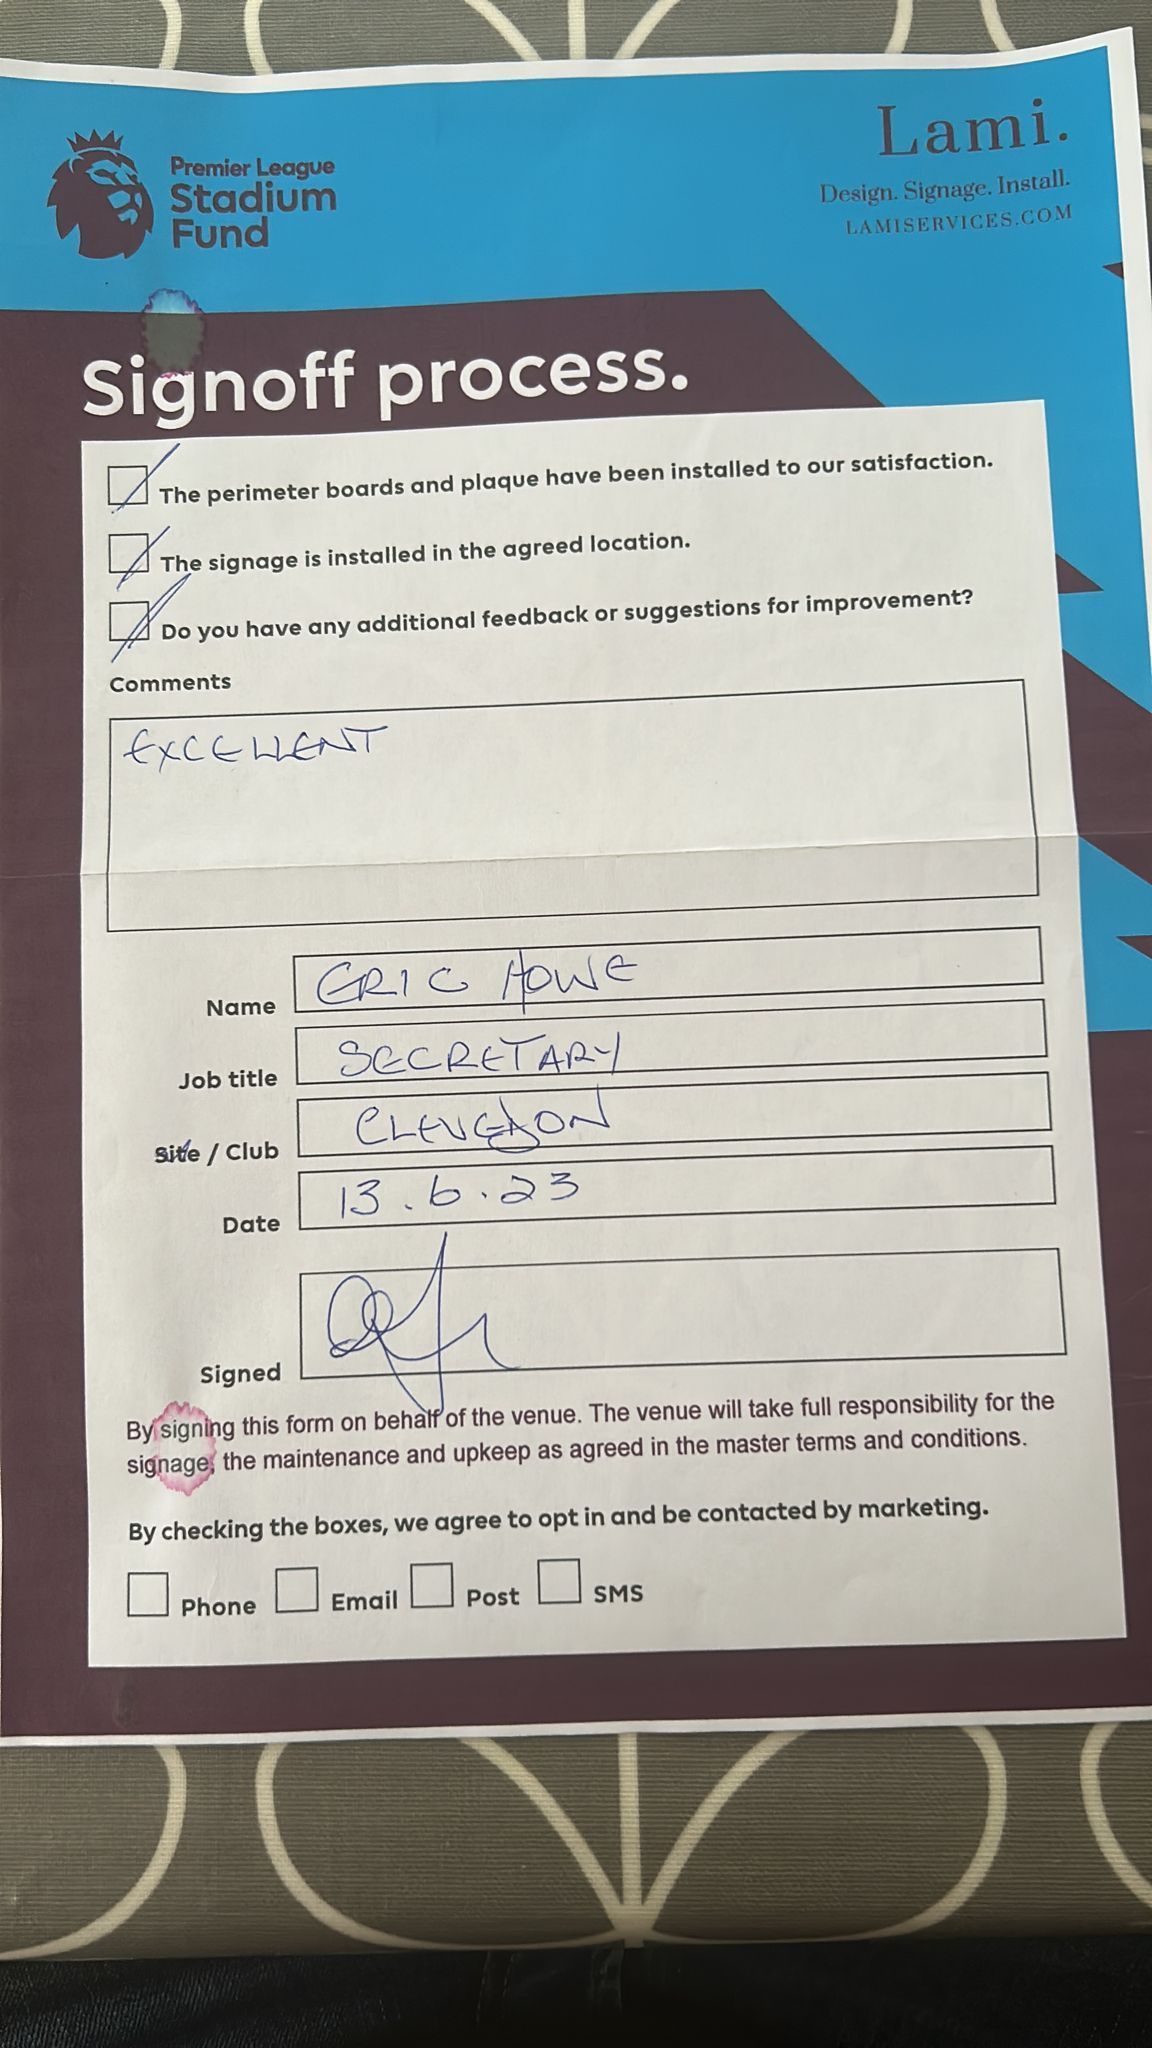 Premier League
Stadium
Fund
Lami.
Design. Signage. Install.
LAMISERVICES.COM
Signoff process.
The perimeter boards and plaque have been installed to our satisfaction.
The signage is installed in the agreed location.
Do you have any additional feedback or suggestions for improvement?
Comments
EXCELLENT
Name ERIC HOWE
Job title SECRETARY
Site / Club CLEVEDON
Date 13.6.23
Signed
By signing this form on behalf of the venue. The venue will take full responsibility for the
signage, the maintenance and upkeep as agreed in the master terms and conditions.
By checking the boxes, we agree to opt in and be contacted by marketing.
Phone Email Post SMS